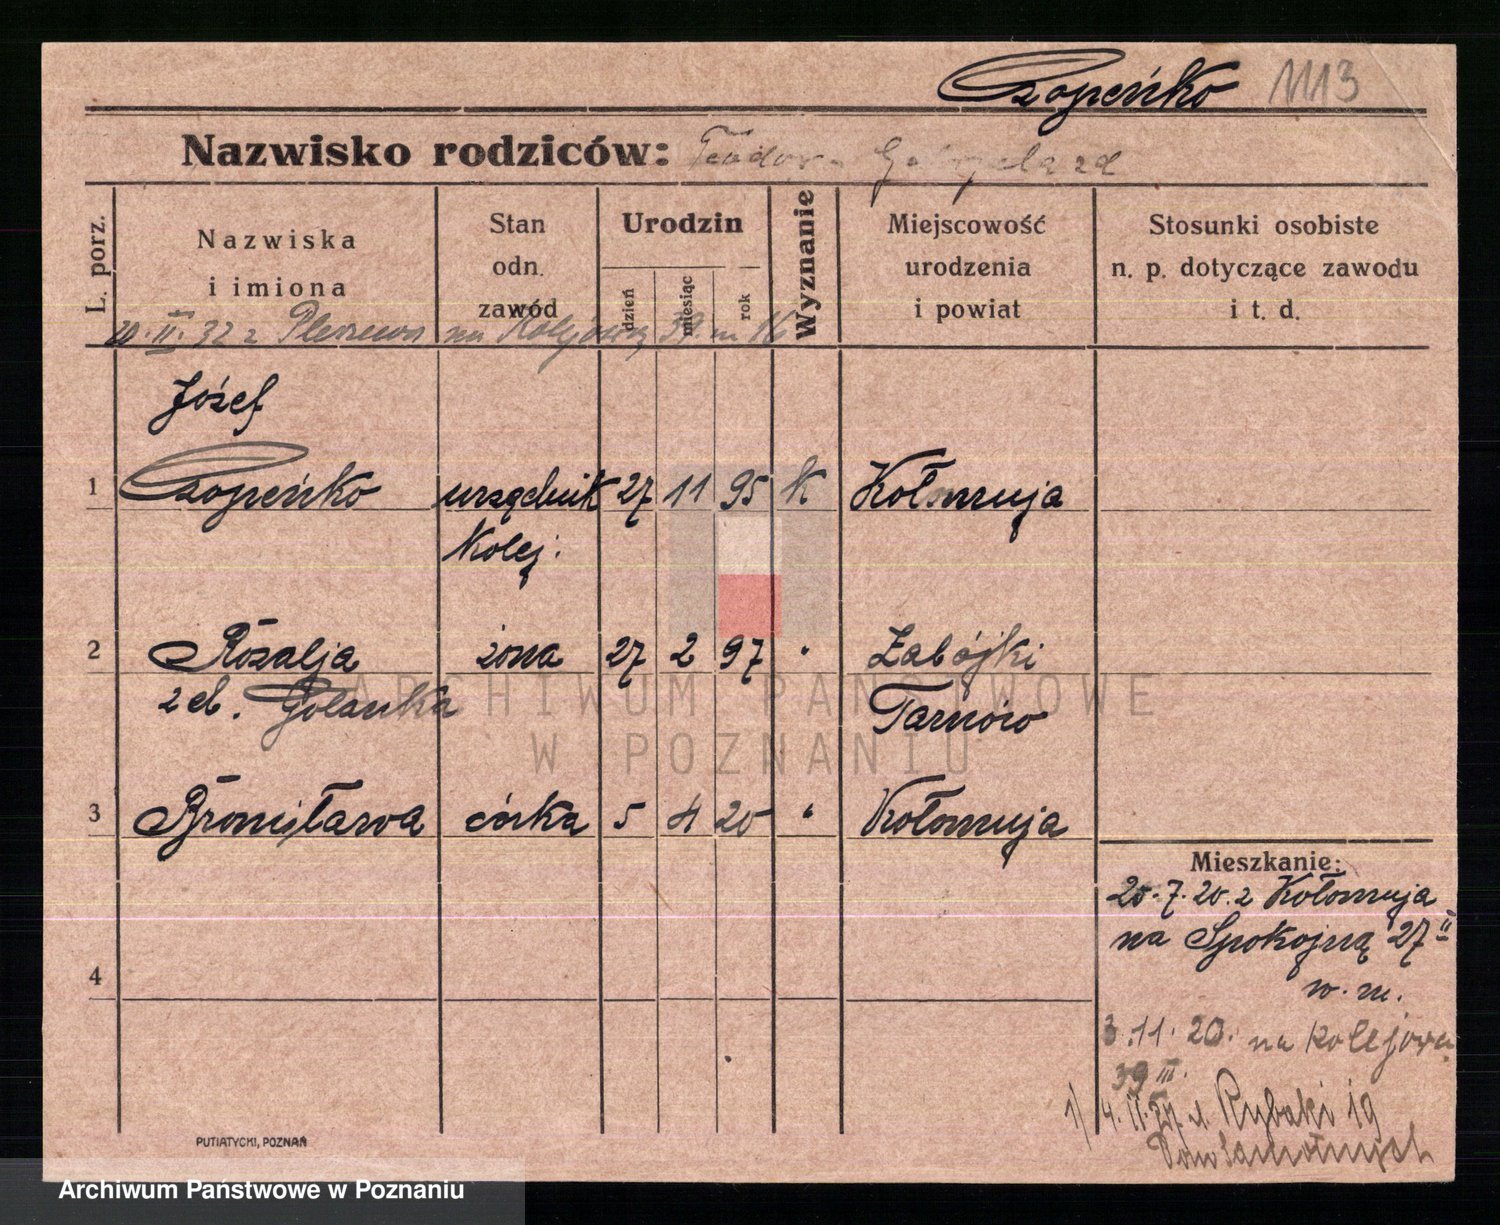 Czopeńko 1113
Nazwisko rodziców:
L. porz.
Nazwiska
i imiona
Stan
odn.
zawód
Urodzin
dzień
miesiąc
rok
Wyznanie
Miejscowość
urodzenia
i powiat
Stosunki osobiste
n. p. dotyczące zawodu
i t. d.
20. II. 32 z Pleszewa na Kolejową 39 m 16
Józef
1 Czopeńko urzędnik 27 11 95 k Kołomyja
Kolej.
2 Rozalja żona 27 2 97 " Zabójki
z d. Tarnów
3 Bronisława córka 5 4 20 " Kołomyja
Mieszkanie:
20.7.20. z Kołomyja
na Spokojną 27 II
w. m.
4
3.11.20. na Kolejową
39 III.
Rybaki 19
PUTIATYCKI, POZNAŃ
ARCHIWUM PAŃSTWOWE
W POZNANIU
Archiwum Państwowe w Poznaniu